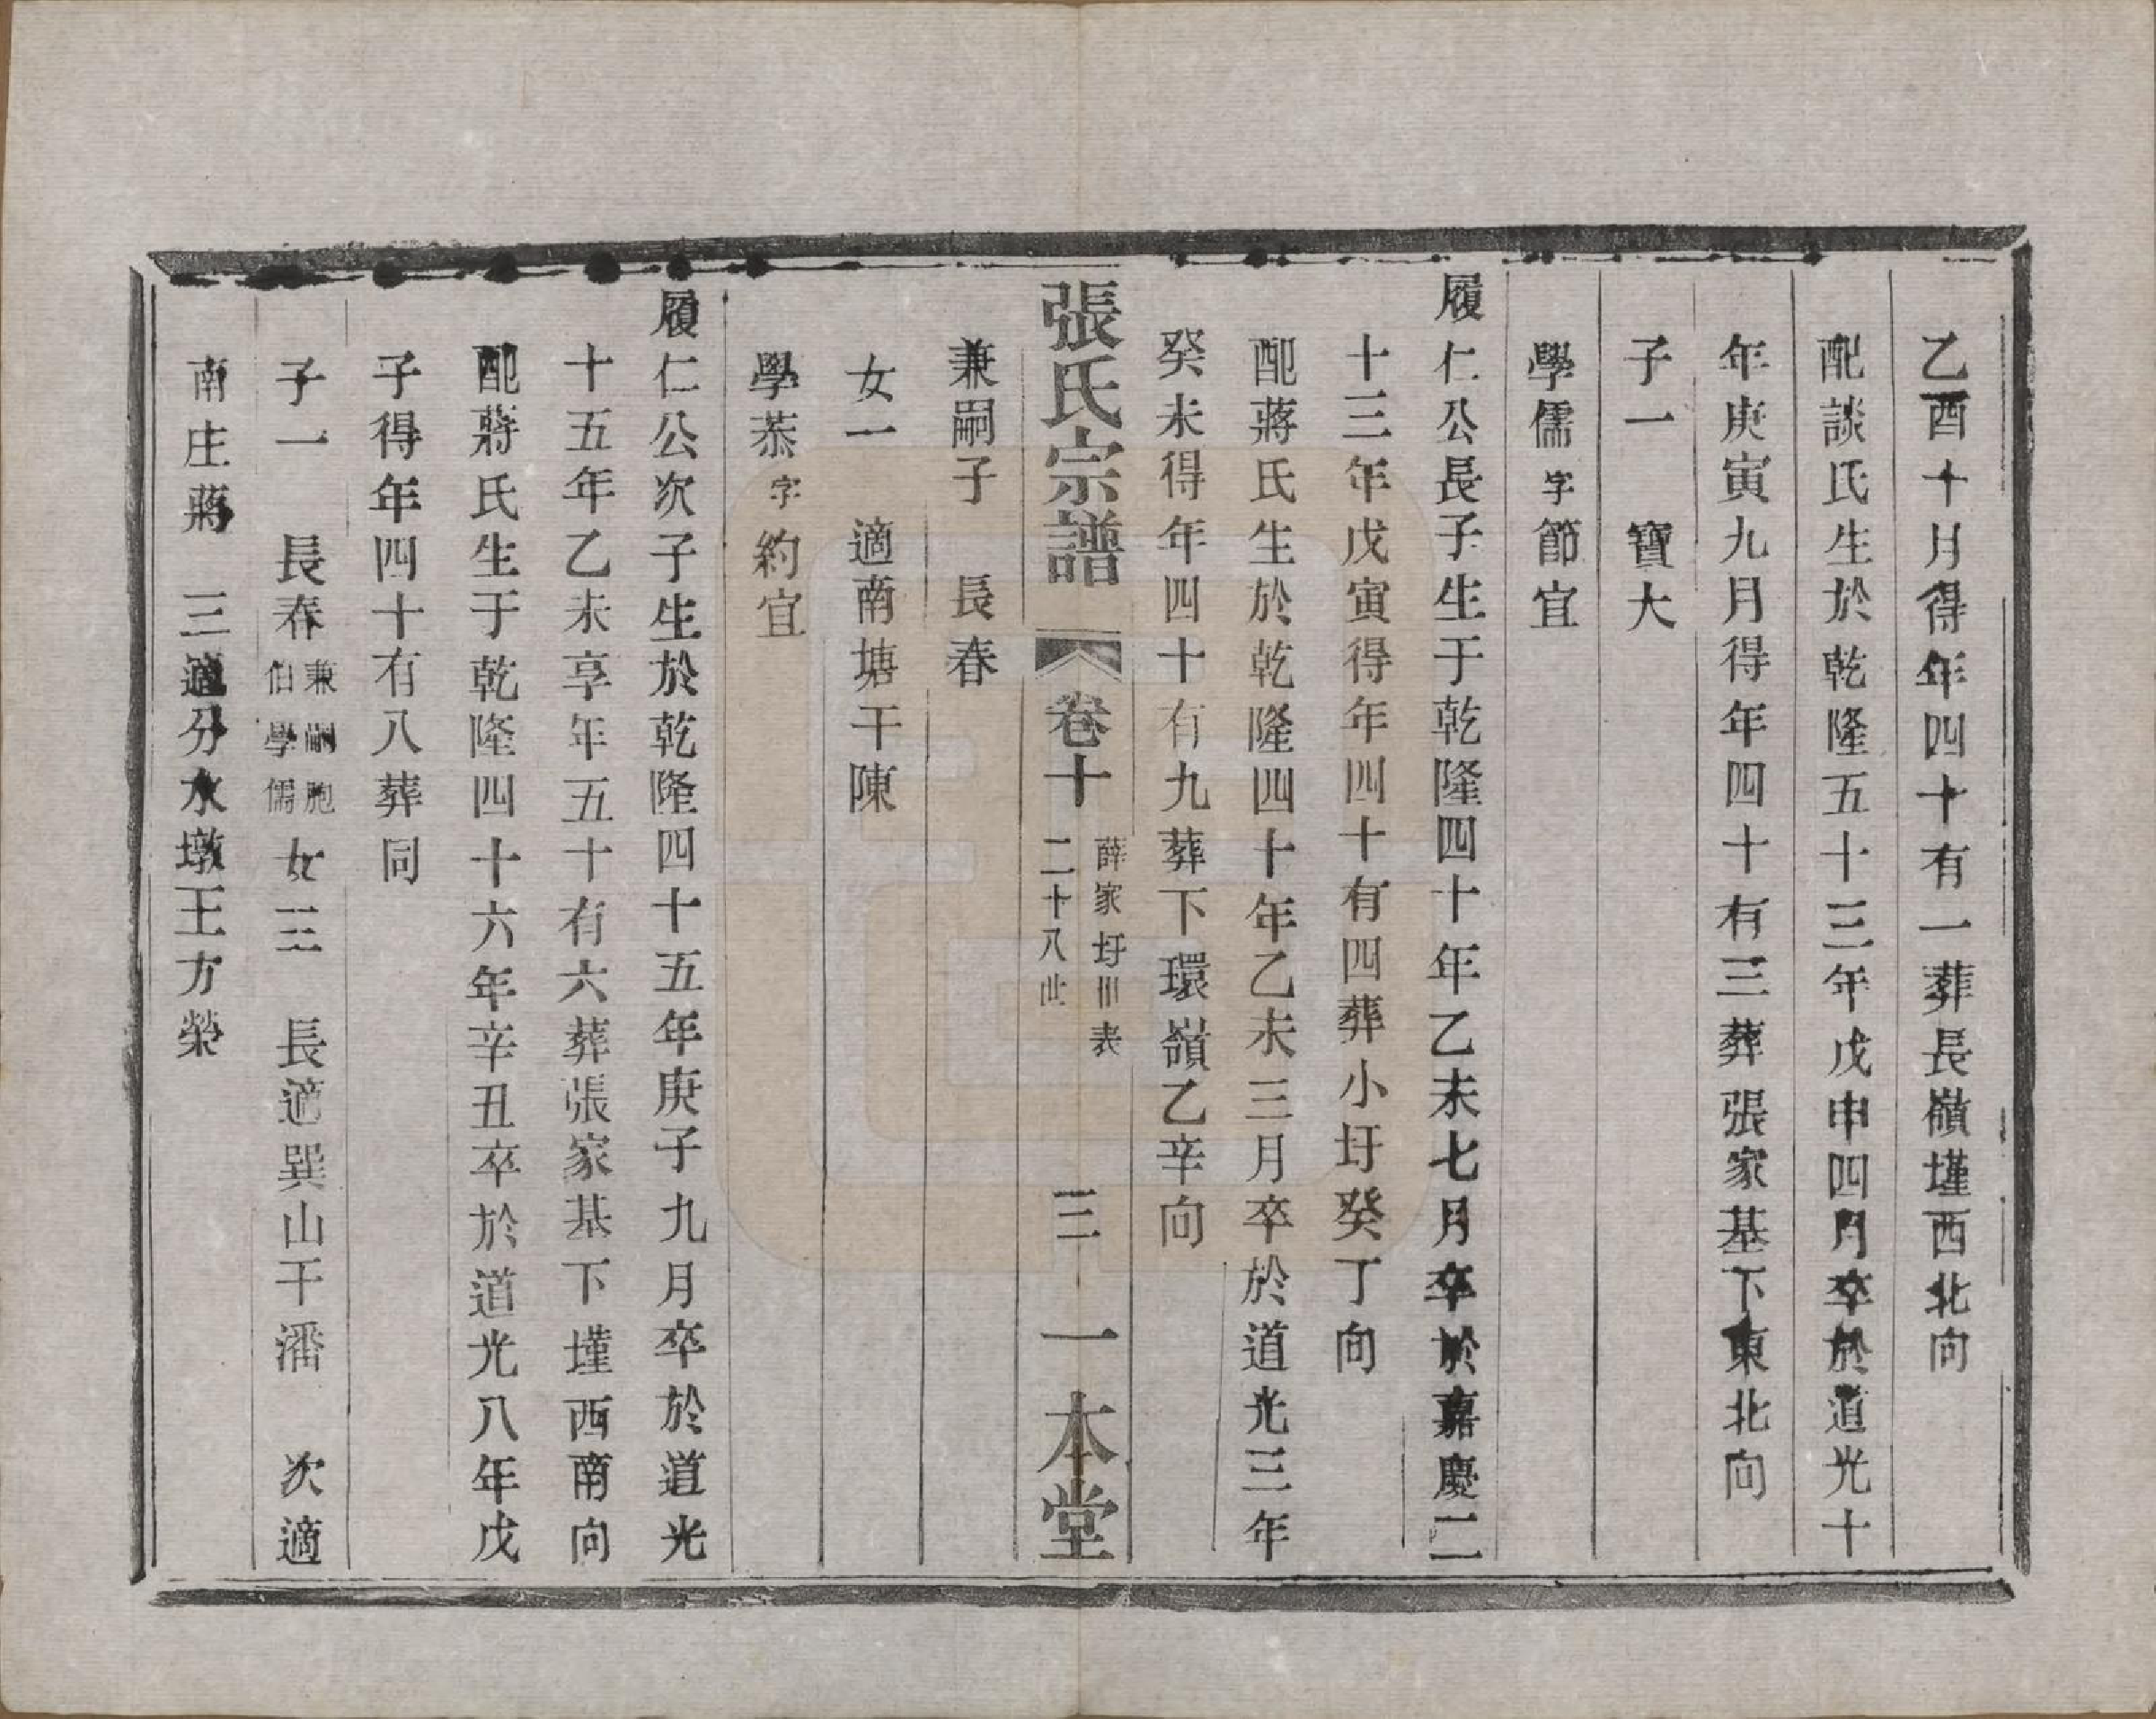 乙酉十月得年四十有一葬長嶺墐西北向
配談氏生於乾隆五十三年戊申四月卒於道光十
年庚寅九月得年四十有三葬張家基下東北向
子一　寶大
學儒字節宜
履仁公長子生于乾隆四十年乙未七月卒於嘉慶二
十三年戊寅得年四十有四葬小圩癸丁向
配蔣氏生於乾隆四十年乙未三月卒於道光三年
癸未得年四十有九葬下環嶺乙辛向
張氏宗譜　卷十　薛家圩卌表　二十八世　三　一本堂
兼嗣子　長春
女一　適南塘干陳
學恭字約宜
履仁公次子生於乾隆四十五年庚子九月卒於道光
十五年乙未享年五十有六葬張家基下墐西南向
配蔣氏生于乾隆四十六年辛丑卒於道光八年戊
子得年四十有八葬同
子一　長春兼嗣胞伯學儒　女三　長適巽山干潘　次適
南庄蔣　三適分水墩王方榮